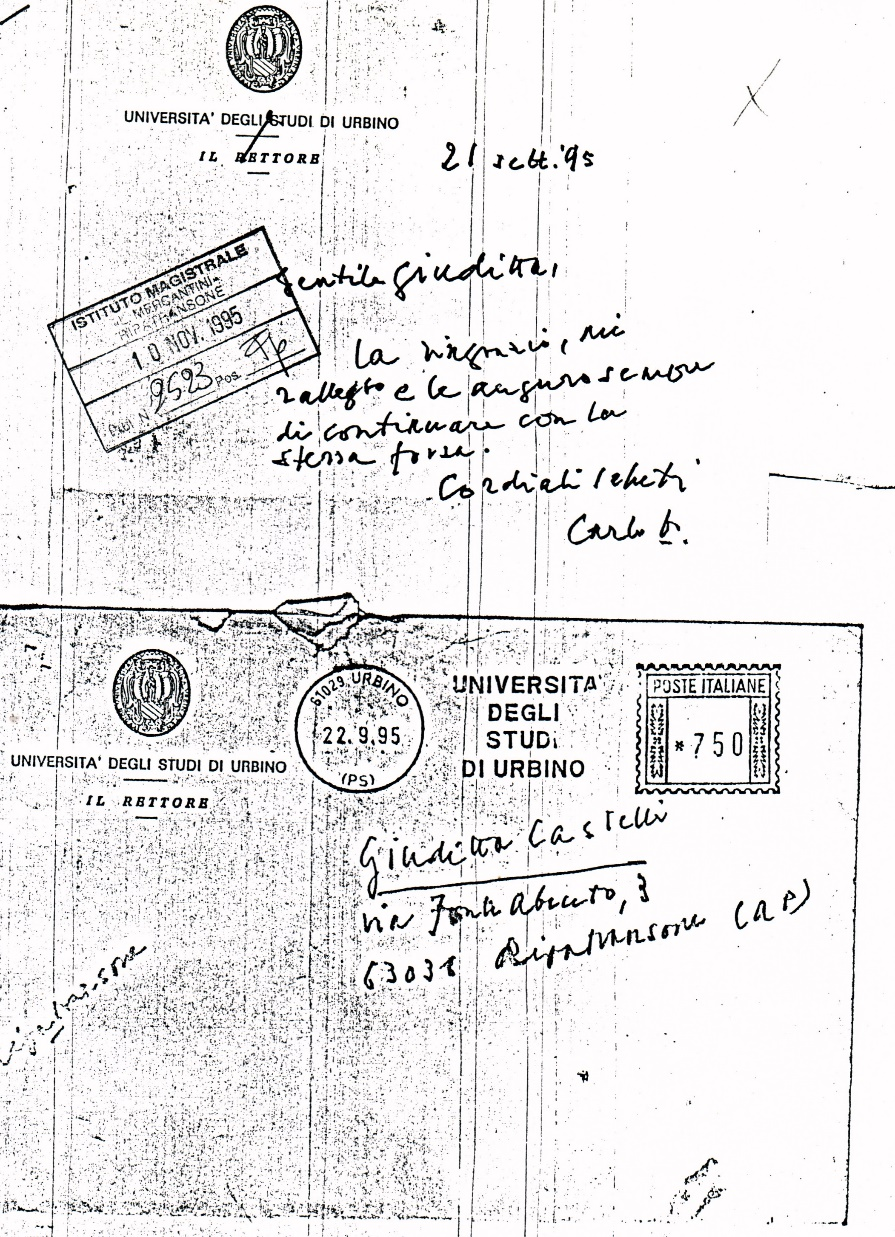 UNIVERSITA' DEGLI STUDI DI URBINO
IL RETTORE
21 sett. '95
ISTITUTO MAGISTRALE
MERCANTINI
RIPATRANSONE
10 NOV. 1995
Prot N. 9523 Pos.
Gentile Giuditta,
La ringrazio, mi
rallegro e le auguro sempre
di continuare con la
stessa forza.
Cordiali saluti
Carlo b.
UNIVERSITA' DEGLI STUDI DI URBINO
IL RETTORE
61029 URBINO
22.9.95
(PS)
UNIVERSITA'
DEGLI
STUDI
DI URBINO
POSTE ITALIANE
*750
Giuditta Castelli
via Fonte Abeceto, 3
63038 Ripatransone (AP)